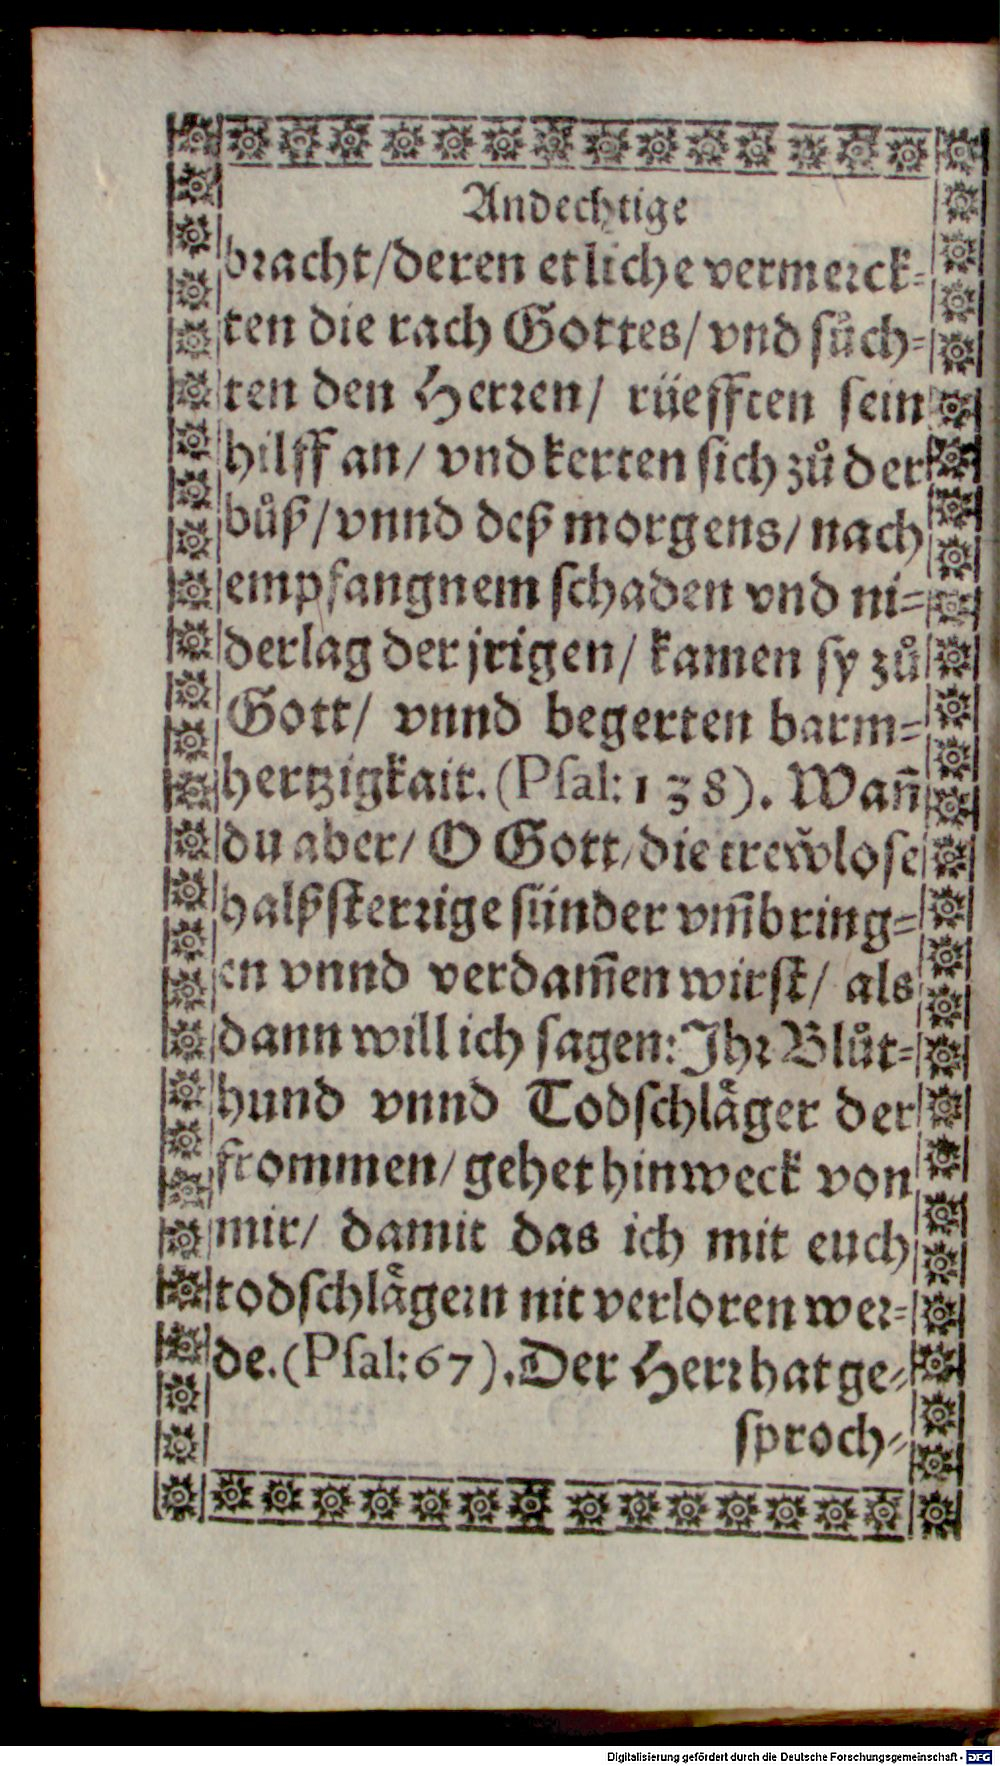 Andechtige
bracht/deren etliche vermerck-
ten die rach Gottes/ vnd sůch-
ten den Herren/ rüefften sein
hilff an/ vnd kerten sich zů der
bůß/vnnd deß morgens/ nach
empfangnem schaden vnd ni-
derlag der jrigen/ kamen sy zů
Gott/ vnnd begerten barm-
hertzigkait. (Psal: 138). Wañ
du aber/ O Gott/ die trew̌lose
halßsterrige sünder vm̃bring-
en vnnd verdam̃en wirst/ als
dann will ich sagen: Ihr Blůt-
hund vnnd Todschlåger der
frommen/ gehet hinweck von
mir/ damit das ich mit euch
todschlågern nit verloren wer-
de. (Psal: 67). Der Herr hat ge-
sproch-
Digitalisierung gefördert durch die Deutsche Forschungsgemeinschaft - DFG